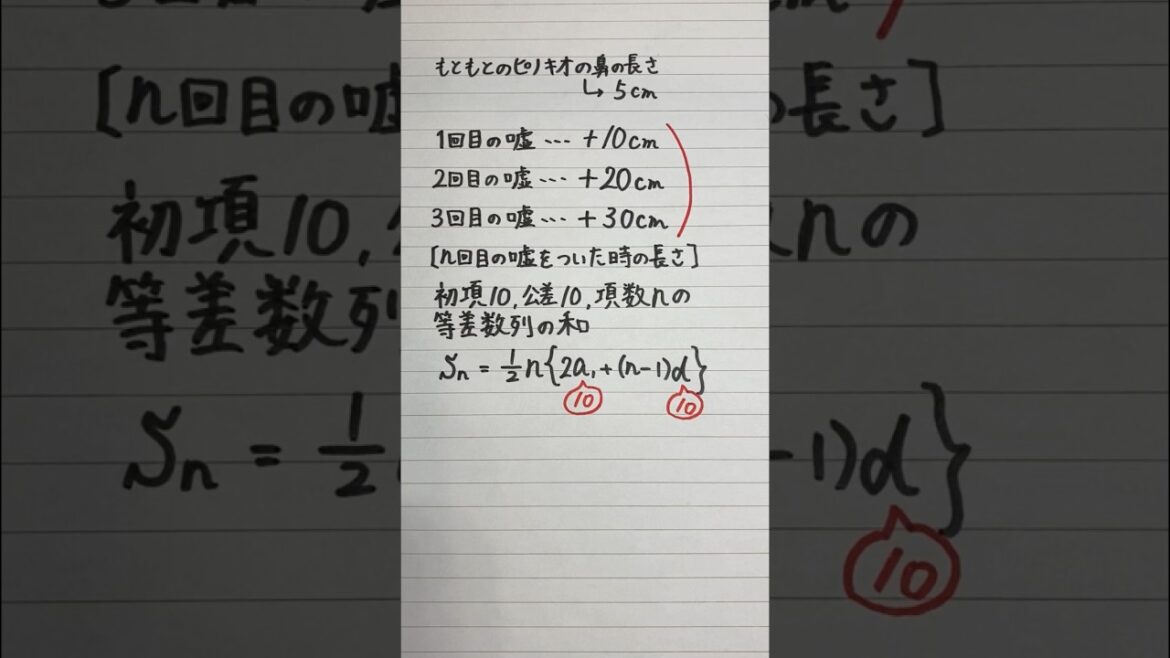 もともとのピノキオの鼻の長さ
↳ 5cm
1回目の嘘 … +10cm
2回目の嘘 … +20cm
3回目の嘘 … +30cm
[n回目の嘘をついた時の長さ]
初項10, 公差10, 項数nの
等差数列の和
Sn = 1/2 n{2a₁+(n-1)d}
10
10